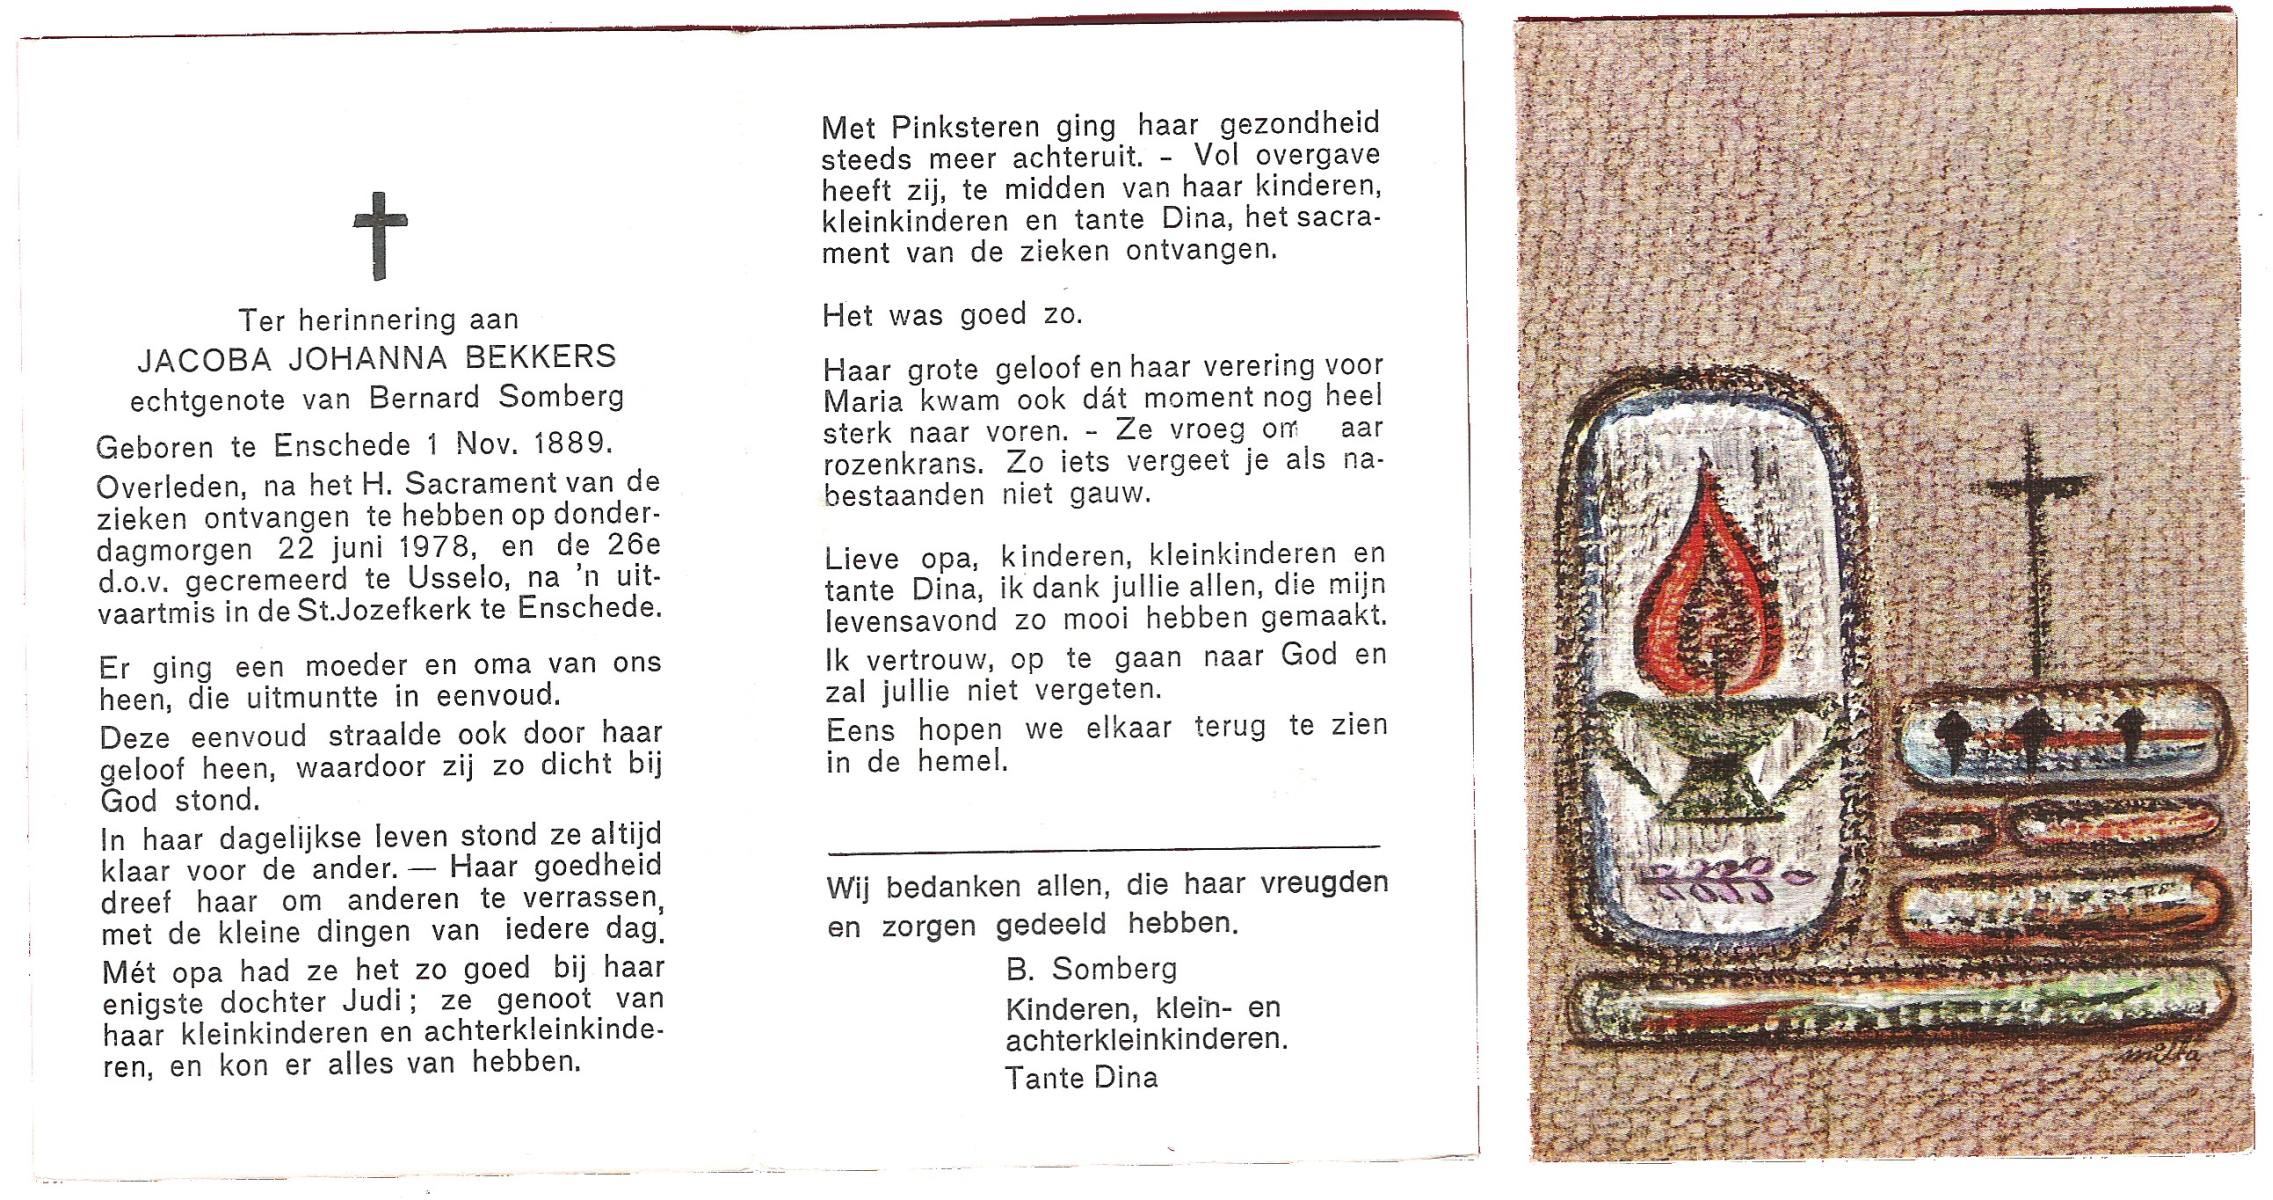 Ter herinnering aan
JACOBA JOHANNA BEKKERS
echtgenote van Bernard Somberg
Geboren te Enschede 1 Nov. 1889.
Overleden, na het H. Sacrament van de
zieken ontvangen te hebben op donder-
dagmorgen 22 juni 1978, en de 26e
d.o.v. gecremeerd te Usselo, na 'n uit-
vaartmis in de St.Jozefkerk te Enschede.
Er ging een moeder en oma van ons
heen, die uitmuntte in eenvoud.
Deze eenvoud straalde ook door haar
geloof heen, waardoor zij zo dicht bij
God stond.
In haar dagelijkse leven stond ze altijd
klaar voor de ander. — Haar goedheid
dreef haar om anderen te verrassen,
met de kleine dingen van iedere dag.
Mét opa had ze het zo goed bij haar
enigste dochter Judi; ze genoot van
haar kleinkinderen en achterkleinkinde-
ren, en kon er alles van hebben.
Met Pinksteren ging haar gezondheid
steeds meer achteruit. - Vol overgave
heeft zij, te midden van haar kinderen,
kleinkinderen en tante Dina, het sacra-
ment van de zieken ontvangen.
Het was goed zo.
Haar grote geloof en haar verering voor
Maria kwam ook dát moment nog heel
sterk naar voren. - Ze vroeg om aar
rozenkrans. Zo iets vergeet je als na-
bestaanden niet gauw.
Lieve opa, kinderen, kleinkinderen en
tante Dina, ik dank jullie allen, die mijn
levensavond zo mooi hebben gemaakt.
Ik vertrouw, op te gaan naar God en
zal jullie niet vergeten.
Eens hopen we elkaar terug te zien
in de hemel.
Wij bedanken allen, die haar vreugden
en zorgen gedeeld hebben.
B. Somberg
Kinderen, klein- en
achterkleinkinderen.
Tante Dina